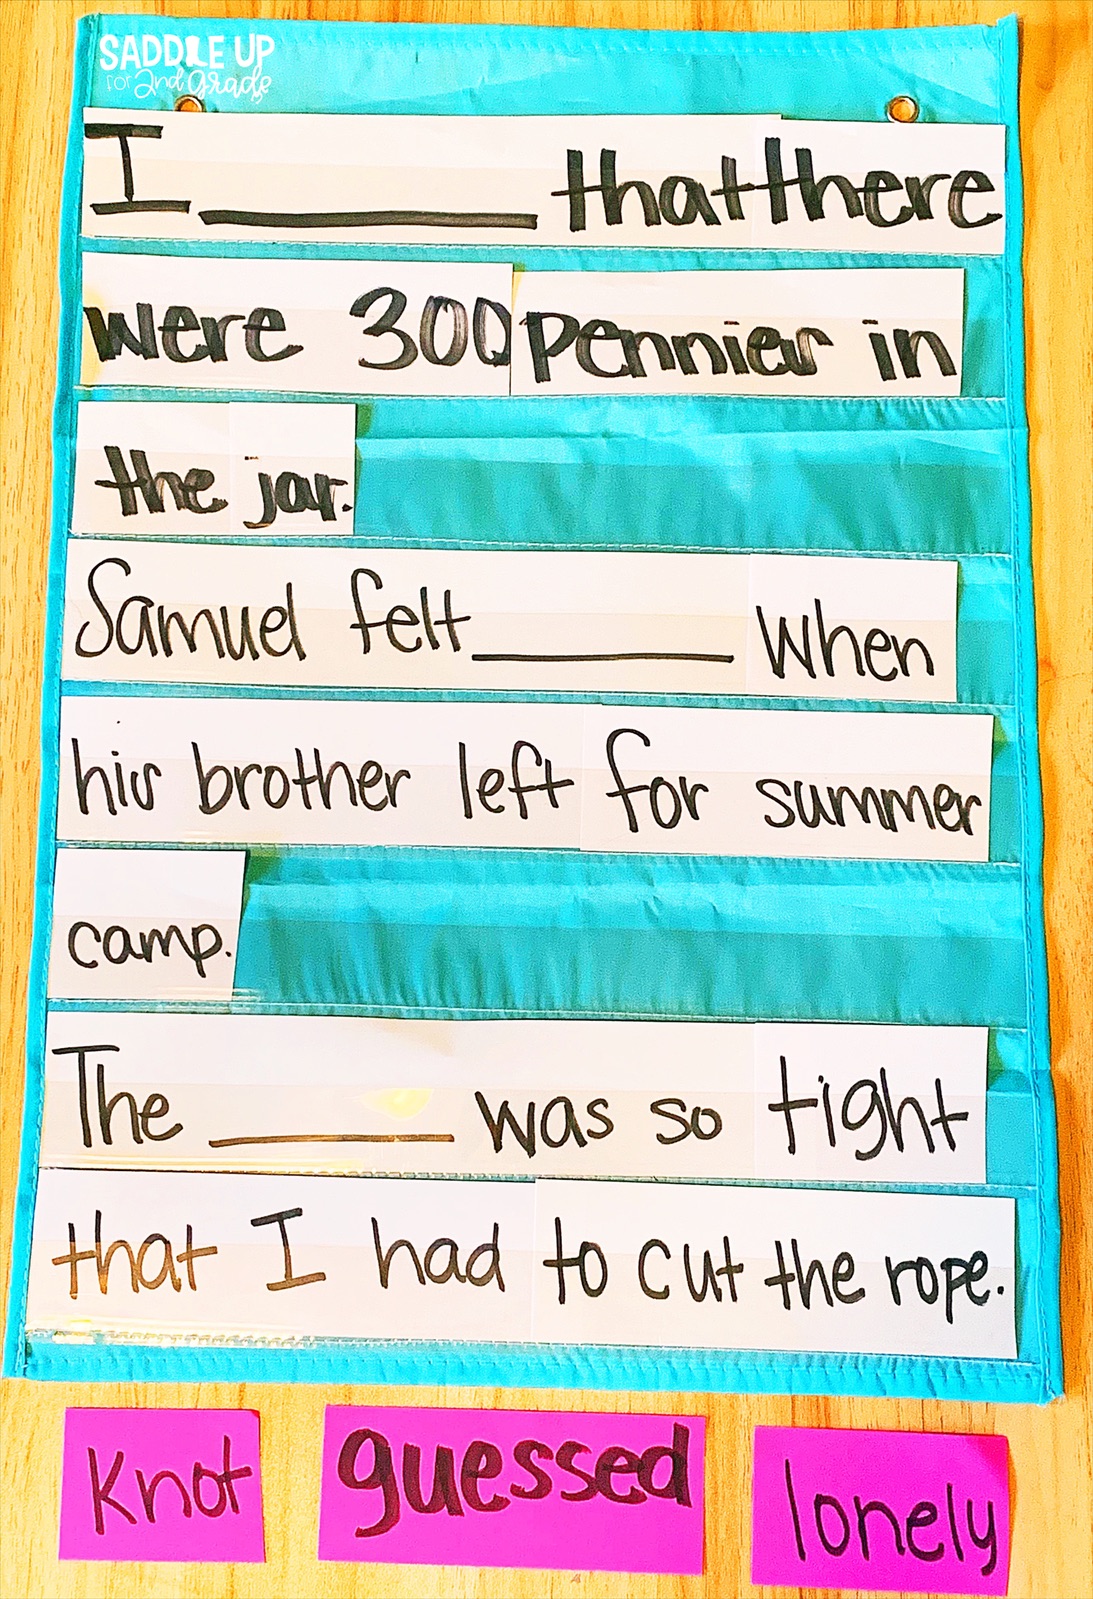 SADDLE UP
for 2nd Grade
I ______ that there
were 300 pennies in
the jar.
Samuel felt ______ when
his brother left for summer
camp.
The ______ was so tight
that I had to cut the rope.
knot guessed lonely